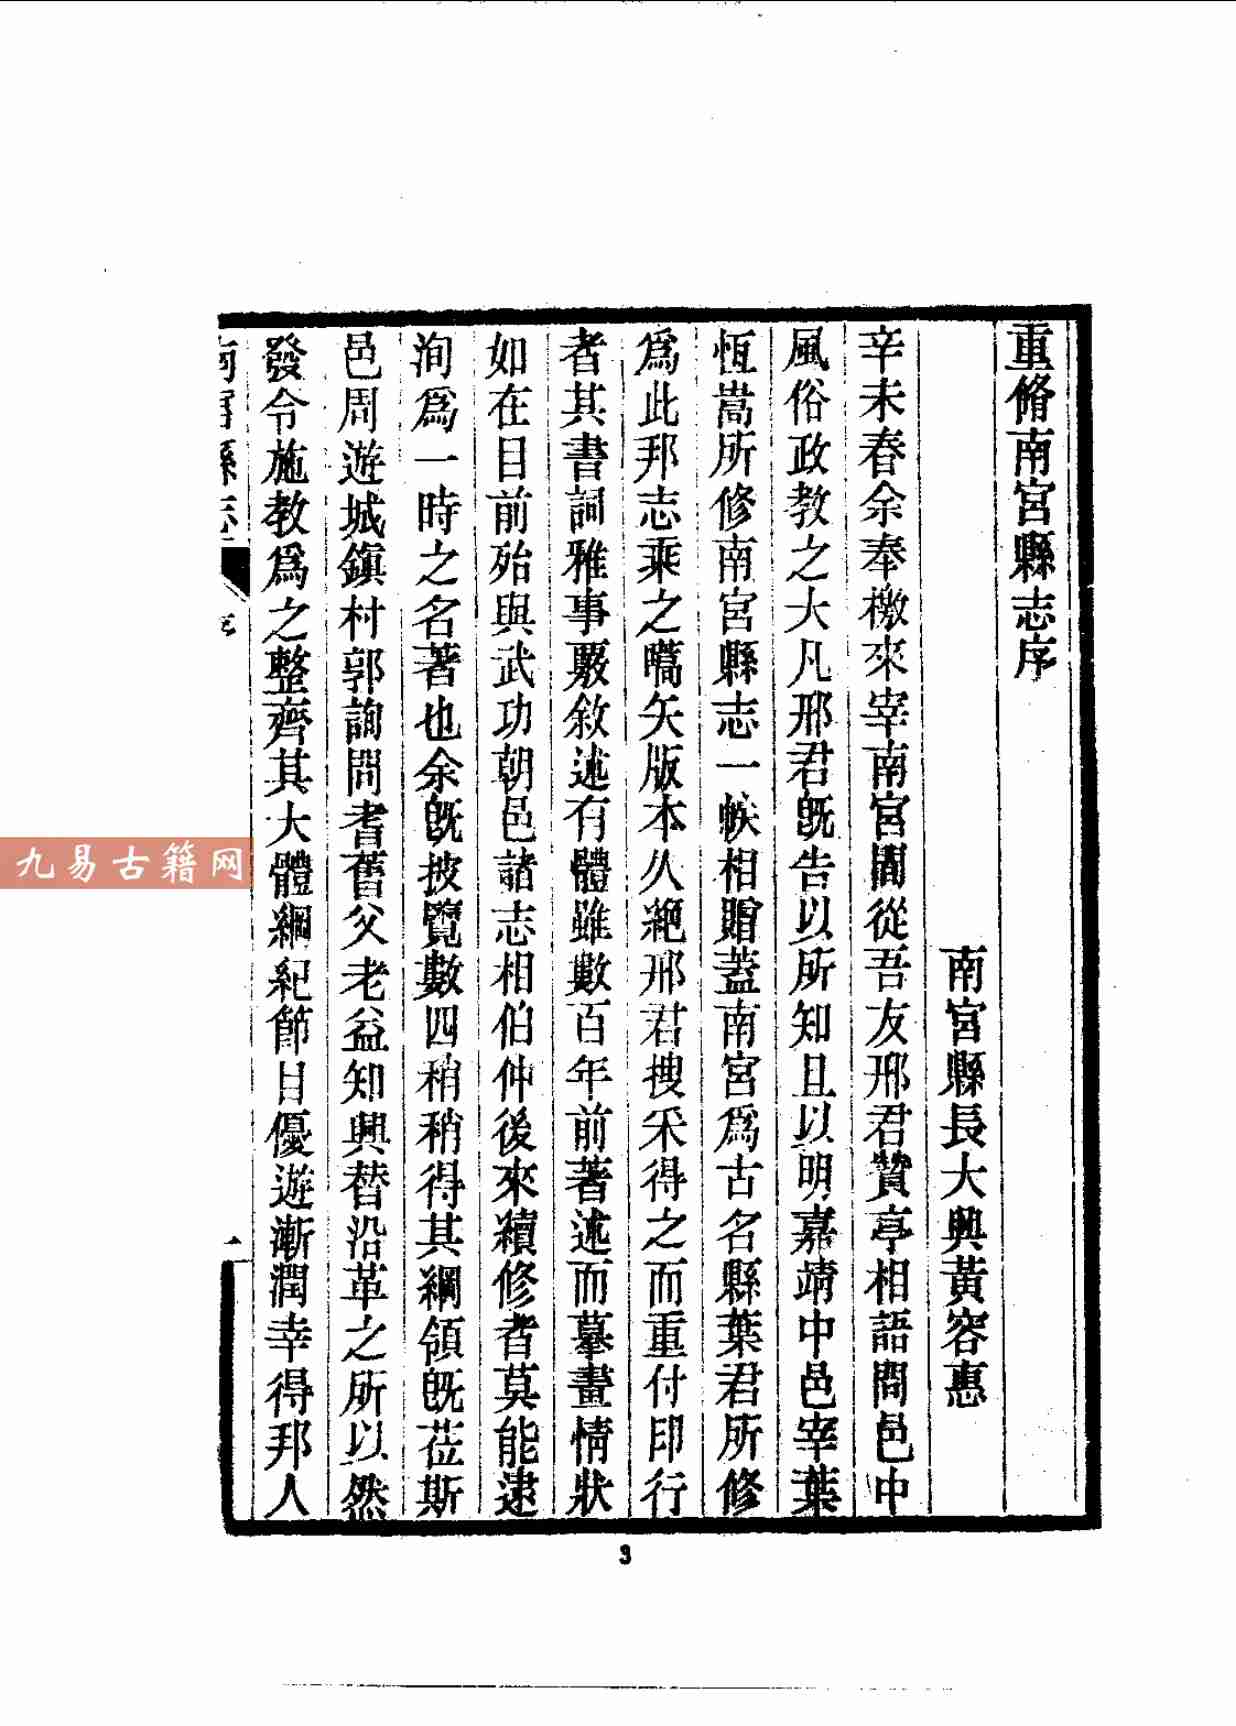 重脩南宮縣志序
南宮縣長大興黃容惠
辛未春余奉檄來宰南宮間從吾友邢君贊亭相語問邑中
風俗政教之大凡邢君既告以所知且以明嘉靖中邑宰葉
恆嵩所修南宮縣志一帙相贈蓋南宮爲古名縣葉君所修
爲此邦志乘之嚆矢版本久絕邢君搜采得之而重付印行
者其書詞雅事覈敘述有體雖數百年前著述而摹畫情狀
如在目前殆與武功朝邑諸志相伯仲後來續修者莫能逮
洵爲一時之名著也余既披覽數四稍稍得其綱領既莅斯
邑周遊城鎮村郭詢問耆舊父老益知興替沿革之所以然
發令施教爲之整齊其大體綱紀節目優遊漸潤幸得邦人
南宮縣志
序
一
3
九易古籍网